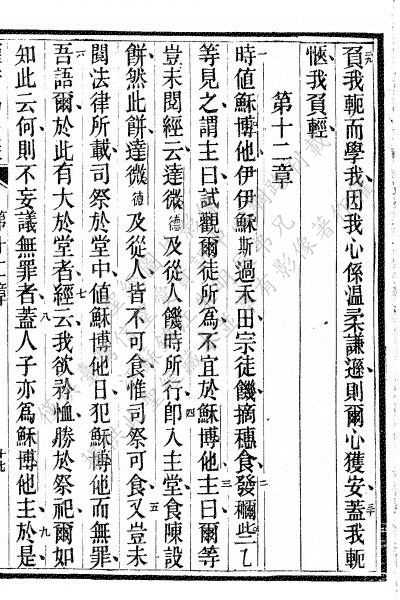 負我軛而學我因我心係溫柔謙遜則爾心獲安蓋我軛
愜我負輕
第十二章
時值穌博他伊伊穌斯過禾田宗徒饑摘穗食發𥻦些乙
等見之謂主曰試觀爾徒所為不宜於穌博他主曰爾等
豈未閱經云達微德及從人饑時所行卽入主堂食陳設
餅然此餅達微德及從人皆不可食惟司祭可食又豈未
閱法律所載司祭於堂中値穌博他日犯穌博他而無罪
吾語爾於此有大於堂者經云我欲矜恤勝於祭祀爾如
知此云何則不妄議無罪者蓋人子亦爲穌博他主於是